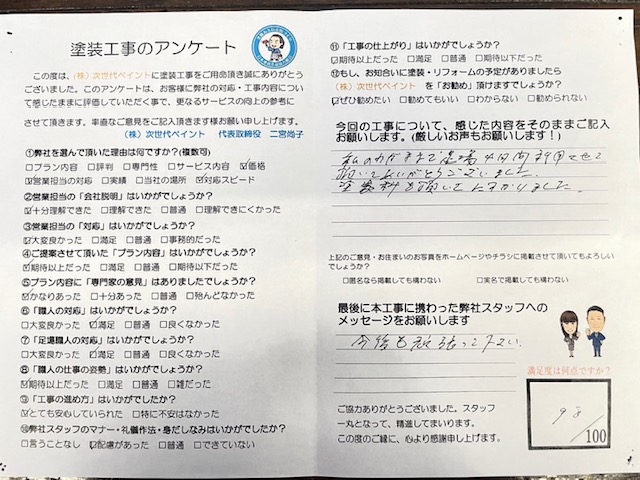 塗装工事のアンケート
この度は、(株)次世代ペイントに塗装工事をご用命頂き誠にありがとう
ございました。このアンケートは、お客様に弊社の対応・工事内容について
感じたままに評価していただく事で、更なるサービスの向上の参考に
させて頂きます。率直なご意見をご記入頂きます様お願い申し上げます。
(株)次世代ペイント 代表取締役 二宮尚子
①弊社を選んで頂いた理由は何ですか?(複数可)
□プラン内容 □評判 □専門性 □サービス内容 ☑価格
☑営業担当の対応 □実績 □当社の場所 ☑対応スピード
②営業担当の「会社説明」はいかがでしょうか?
☑十分理解できた □理解できた □普通 □理解できにくかった
③営業担当の「対応」はいかがでしょうか?
☑大変良かった □満足 □普通 □事務的だった
④ご提案させて頂いた「プラン内容」はいかがでしょうか?
☑期待以上だった □満足 □普通 □期待以下だった
⑤プラン内容に「専門家の意見」はありましたでしょうか?
☑かなりあった □十分あった □普通 □殆んどなかった
⑥「職人の対応」はいかがでしょうか?
□大変良かった ☑満足 □普通 □良くなかった
⑦「足場職人の対応」はいかがでしょうか?
□大変良かった ☑満足 □普通 □良くなかった
⑧「職人の仕事の姿勢」はいかがでしょうか?
☑期待以上だった □満足 □普通 □雑だった
⑨「工事の進め方」はいかがでしたか?
☑とても安心していられた □特に不安はなかった
⑩弊社スタッフのマナー・礼儀作法・身だしなみはいかがでしたか?
□言うことなし ☑配慮があった □普通 □できていない
⑪「工事の仕上がり」はいかがでしょうか?
☑期待以上だった □満足 □普通 □期待以下だった
⑫もし、お知合いに塗装・リフォームの予定がありましたら
(株)次世代ペイント を「お勧め」頂けますでしょうか?
☑ぜひ勧めたい □勧めてもいい □わからない □勧められない
今回の工事について、感じた内容をそのままご記入
お願いします。(厳しいお声もお願いします!)
私のわがままで足場4日間利用させて
頂いてありがとうございました。
塗装料も頂いて助かりました。
上記のご意見・お住まいのお写真をホームページやチラシに掲載させて頂いてもよろしい
でしょうか?
□匿名なら掲載しても構わない □実名で掲載しても構わない
最後に本工事に携わった弊社スタッフへの
メッセージをお願いします
今後も頑張って下さい。
満足度は何点ですか?
98/100
ご協力ありがとうございました。スタッフ
一丸となって、精進してまいります。
この度のご縁に、心より感謝申し上げます。